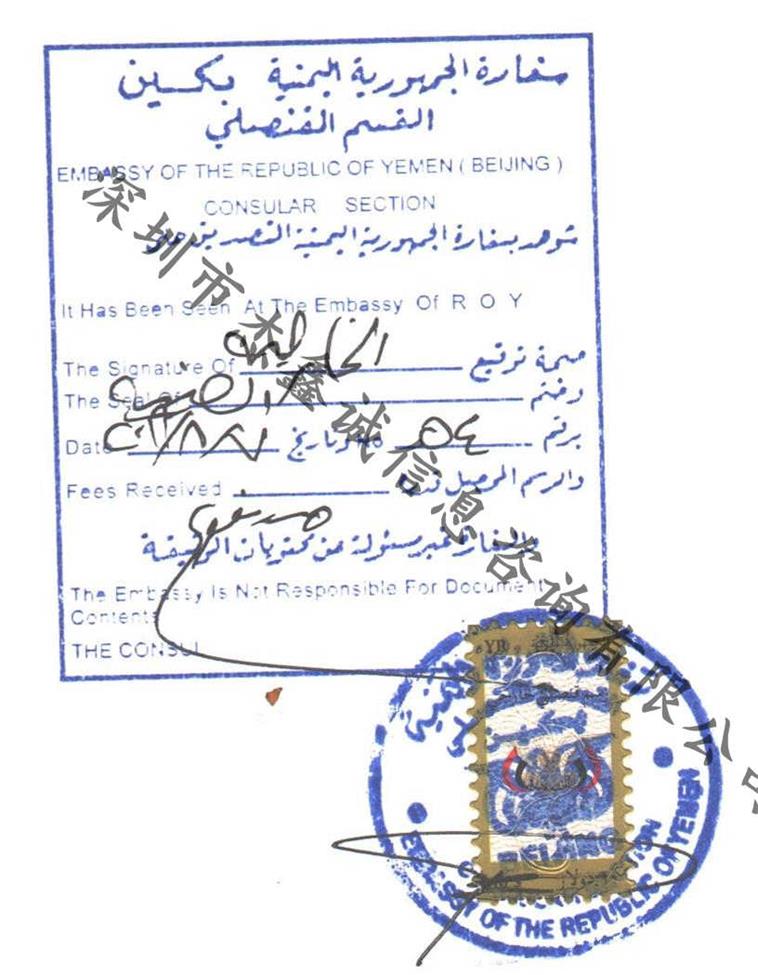 سفارة الجمهورية اليمنية بكسين
القسم القنصلي
EMBASSY OF THE REPUBLIC OF YEMEN ( BEIJING )
CONSULAR SECTION
شوهد بسفارة الجمهورية اليمنية التصديق على
It Has Been Seen At The Embassy Of R O Y
The Signature Of الخارجية صحة توقيع
The Seal Of الصينية وختم
Date وتاريخ No ٥٤ برقم
Fees Received والرسم المحصل قدره
والسفارة غير مسئولة عن محتويات الوثيقة
The Embassy Is Not Responsible For Document
Contents
THE CONSUL
深圳市
鑫诚信息咨询有限公司
YR
EMBASSY OF THE REPUBLIC OF YEMEN